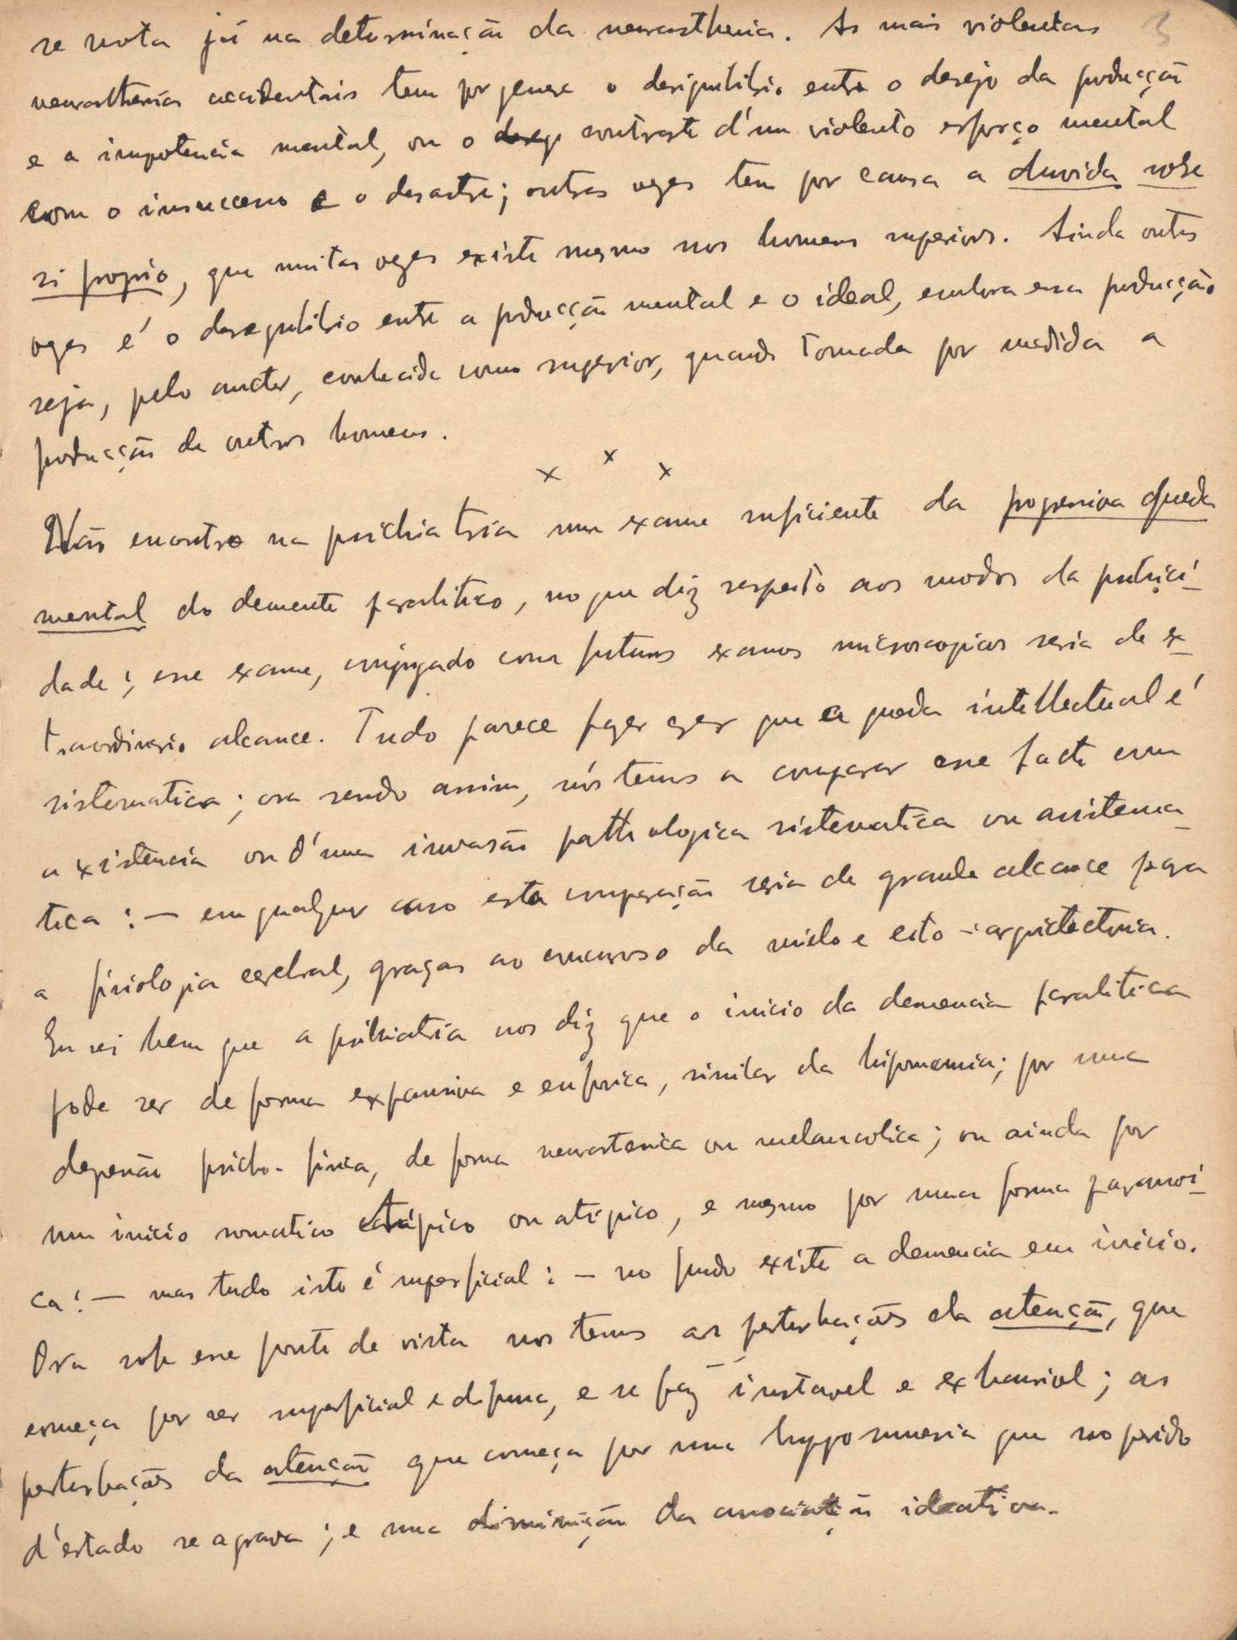 3
se nota já na determinação da neurasthenia. As mais violentas
neurasthenias accidentais tem por genese o desiquilibrio entre o desejo da producção
e a impotencia mental, ou o contraste d'um violento esforço mental
com o insuccesso e o desastre; outras vezes tem por causa a duvida sobre
si proprio, que muitas vezes existe mesmo nos homens superiores. Ainda outras
vezes é o desequilibrio entre a producção mental e o ideal, embora essa producção
seja, pelo auctor, conhecida como superior, quando tomada por medida a
producção de outros homens.
x x x
Não encontro na psichiatria um exame suficiente da progressiva queda
mental do demente paralitico, no que diz respeito aos modos da psiquici-
dade; esse exame, conjugado com futuros exames microscopicos seria de ex-
traordinario alcance. Tudo parece fazer crer que a queda intellectual é
sistematica; ora sendo assim, nós temos a comparar esse facto com
a existencia ou d'uma invasão pathologica sistematica ou assistema-
tica: — em qualquer caso esta comparação seria de grande alcance para
a fisiologia cerebral, graças ao concurso da mielo e cito-arquitectonia.
Eu sei bem que a psikiatria nos diz que o inicio da demencia paralitica
pode ser de forma expansiva e euforica, similar da hipomania; por uma
depressão psicho-fisica, de forma neurastenica ou melancolica; ou ainda por
um inicio somatico típico ou atípico, e mesmo por uma forma paranoi-
ca: — mas tudo isto é superficial: — no fundo existe a demencia em inicio.
Ora sob esse ponto de vista nós temos as perturbações da atenção, que
começa por ser superficial e difusa, e se faz instavel e exhaurivel; as
perturbações da atenção que começa por uma hypomnesia que no periodo
d'estado se agrava; e uma diminuição da associação ideativa.